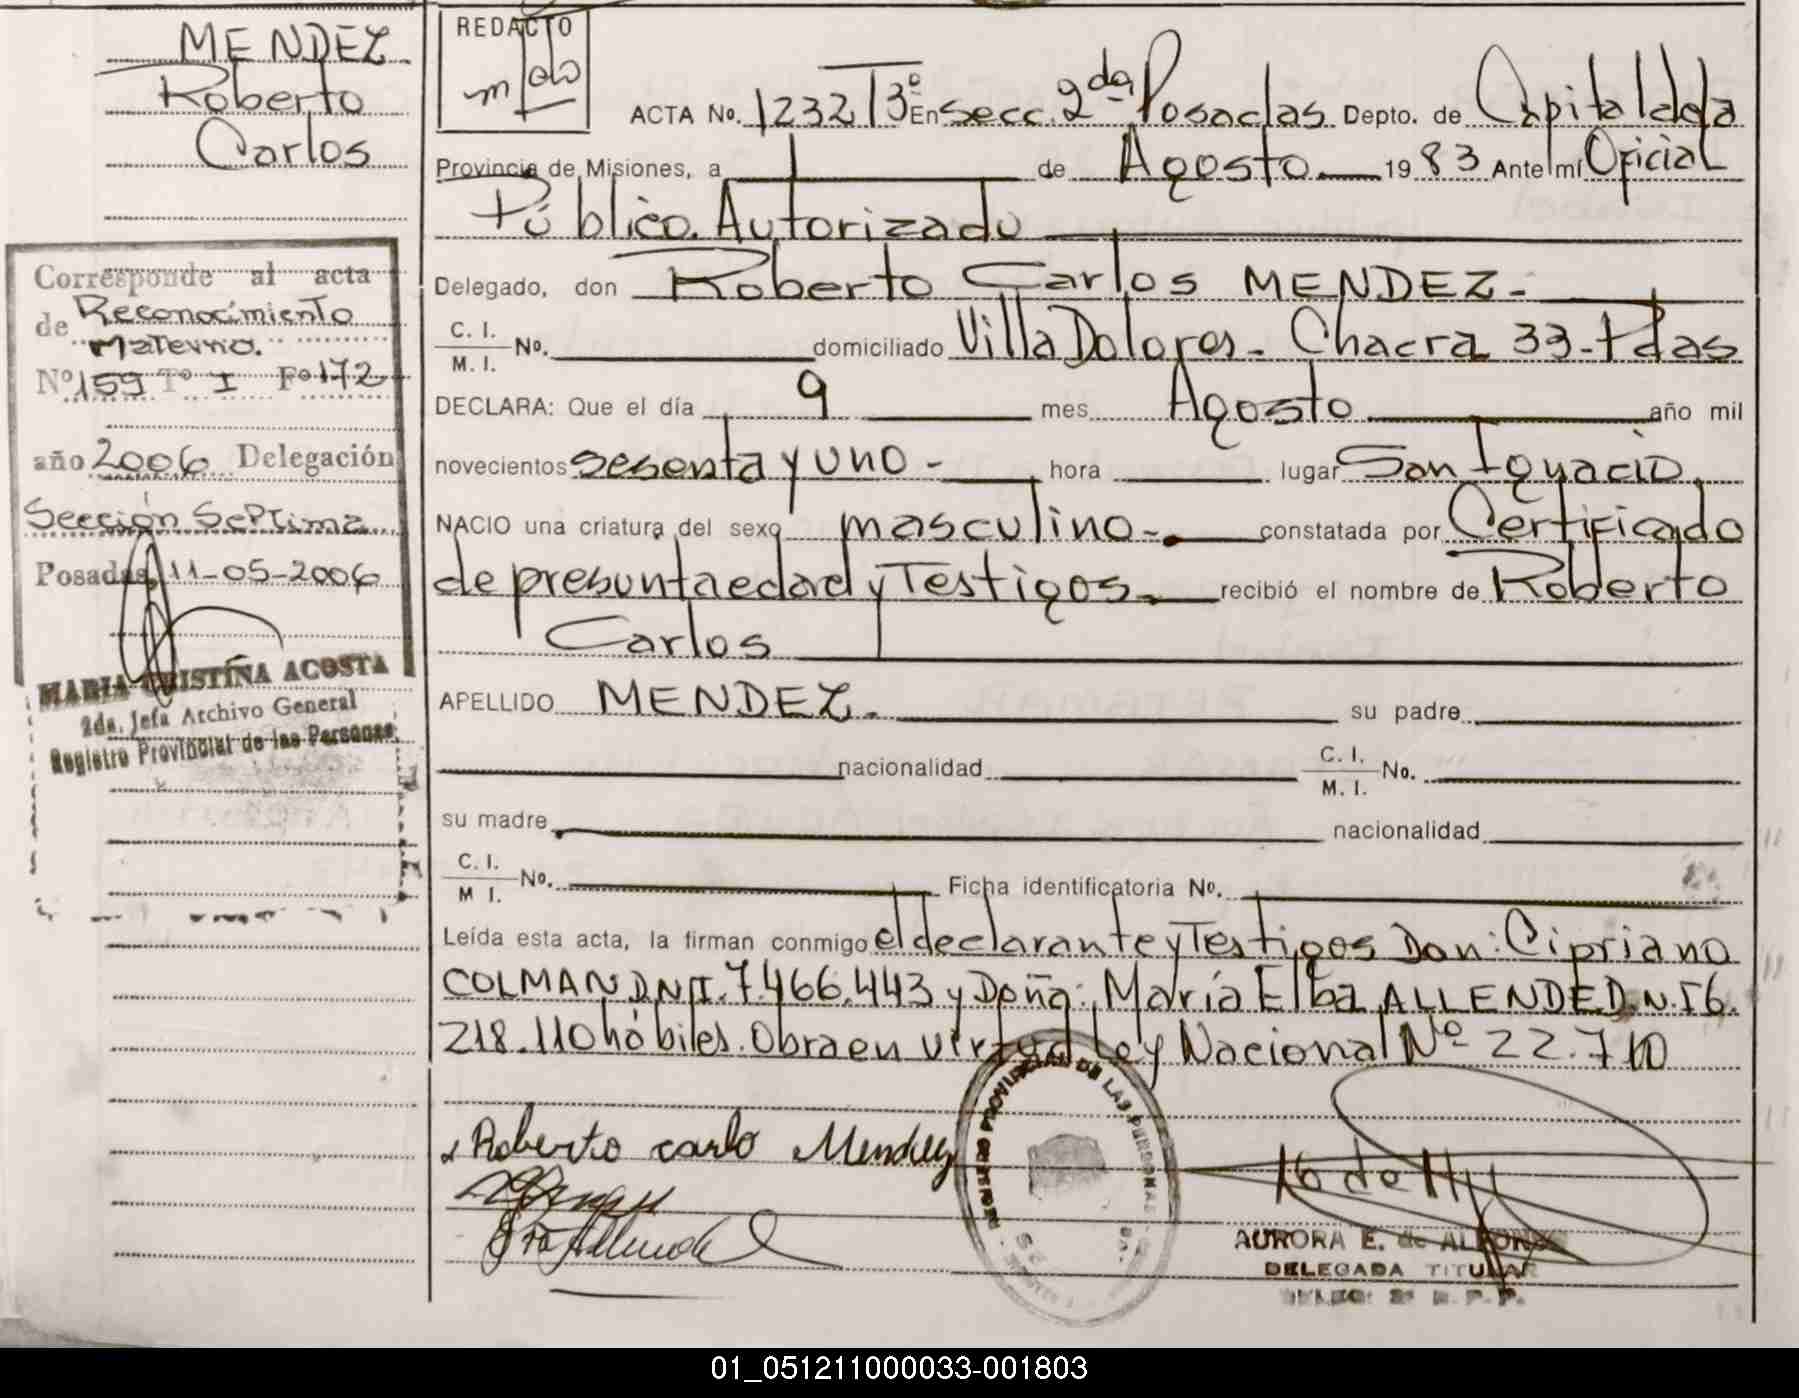 MENDEZ
Roberto
Carlos
Corresponde al acta
de Reconocimiento
Materno.
Nº 159 Tº I Fº 172
año 2006 Delegación
Sección Septima
Posadas, 11-05-2006
MARIA CRISTINA ACOSTA
2da. Jefa Archivo General
Registro Provincial de las Personas
REDACTO
ACTA No. 1232 T3º En secc. 2da Posadas Depto. de Capital de la
Provincia de Misiones, a 1 de Agosto 1983 Ante mí Oficial
Público Autorizado
Delegado, don Roberto Carlos MENDEZ-
C. I.
M. I. No. domiciliado Villa Dolores- Chacra 33-Pdas
DECLARA: Que el día 9 mes Agosto año mil
novecientos sesenta y uno- hora lugar San Ignacio
NACIO una criatura del sexo masculino- constatada por Certificado
de presunta edad y Testigos. recibió el nombre de Roberto
Carlos
APELLIDO MENDEZ. su padre
nacionalidad C. I.
M. I. No.
su madre nacionalidad
C. I.
M I. No. Ficha identificatoria No.
Leída esta acta, la firman conmigo el declarante y Testigos Don: Cipriano
COLMAN D.N.I. 7.466.443 y Doña: María Elba ALLENDE D.N.I 6.
218.110 hábiles. Obra en virtud Ley Nacional Nº 22.710
Roberto carlo Mendez
REGISTRO PROVINCIAL DE LAS PERSONAS
AURORA E. de ALFONSO
DELEGADA TITULAR
01_051211000033-001803